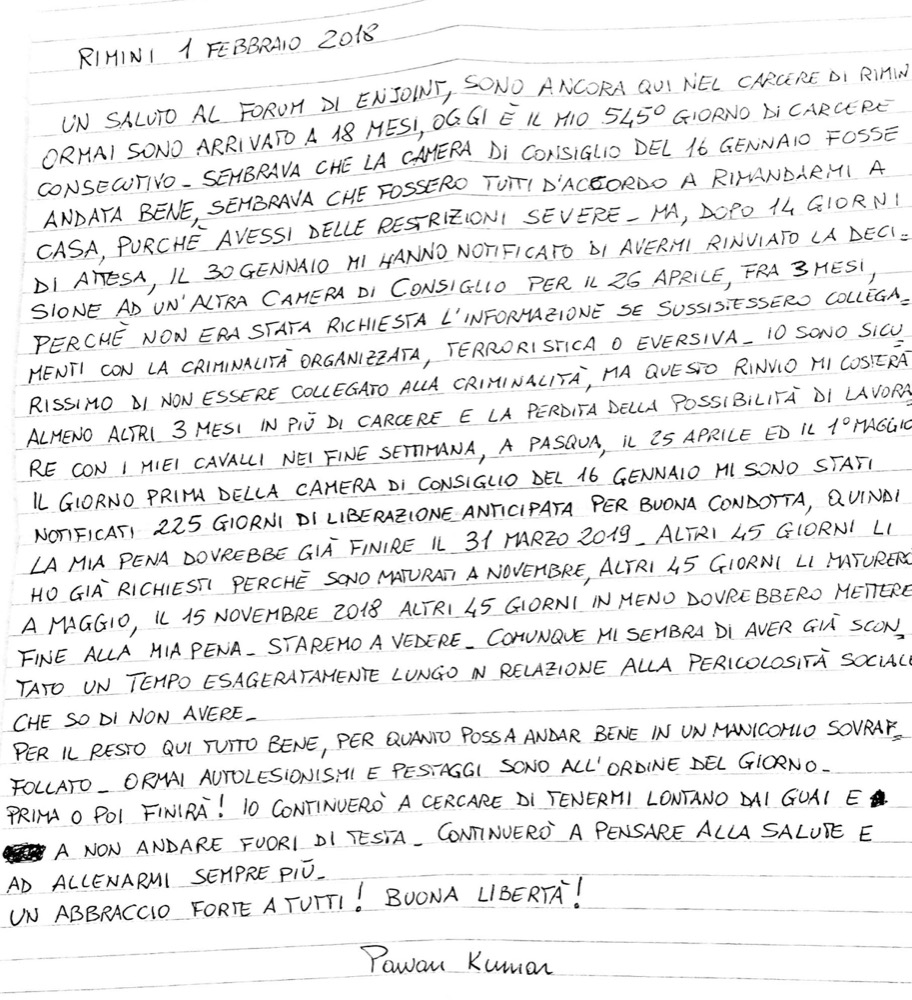 RIMINI 1 FEBBRAIO 2018
UN SALUTO AL FORUM DI ENJOINT, SONO ANCORA QUI NEL CARCERE DI RIMIN
ORMAI SONO ARRIVATO A 18 MESI, OGGI È IL MIO 545° GIORNO DI CARCERE
CONSECUTIVO_ SEMBRAVA CHE LA CAMERA DI CONSIGLIO DEL 16 GENNAIO FOSSE
ANDATA BENE, SEMBRAVA CHE FOSSERO TUTTI D'ACCORDO A RIMANDARMI A
CASA, PURCHÈ AVESSI DELLE RESTRIZIONI SEVERE_ MA, DOPO 14 GIORNI
DI ATTESA, IL 30 GENNAIO MI HANNO NOTIFICATO DI AVERMI RINVIATO LA DECI=
SIONE AD UN'ALTRA CAMERA DI CONSIGLIO PER IL 26 APRILE, FRA 3 MESI,
PERCHÈ NON ERA STATA RICHIESTA L'INFORMAZIONE SE SUSSISTESSERO COLLEGA=
MENTI CON LA CRIMINALITÀ ORGANIZZATA, TERRORISTICA O EVERSIVA_ IO SONO SICU=
RISSIMO DI NON ESSERE COLLEGATO ALLA CRIMINALITÀ, MA QUESTO RINVIO MI COSTERÀ
ALMENO ALTRI 3 MESI IN PIÙ DI CARCERE E LA PERDITA DELLA POSSIBILITÀ DI LAVORA
RE CON I MIEI CAVALLI NEI FINE SETTIMANA, A PASQUA, IL 25 APRILE ED IL 1° MAGGIO
IL GIORNO PRIMA DELLA CAMERA DI CONSIGLIO DEL 16 GENNAIO MI SONO STATI
NOTIFICATI 225 GIORNI DI LIBERAZIONE ANTICIPATA PER BUONA CONDOTTA, QUINDI
LA MIA PENA DOVREBBE GIÀ FINIRE IL 31 MARZO 2019_ ALTRI 45 GIORNI LI
HO GIÀ RICHIESTI PERCHÈ SONO MATURATI A NOVEMBRE, ALTRI 45 GIORNI LI MATURERO
A MAGGIO, IL 15 NOVEMBRE 2018 ALTRI 45 GIORNI IN MENO DOVREBBERO METTERE
FINE ALLA MIA PENA_ STAREMO A VEDERE_ COMUNQUE MI SEMBRA DI AVER GIÀ SCON_
TATO UN TEMPO ESAGERATAMENTE LUNGO IN RELAZIONE ALLA PERICOLOSITÀ SOCIALE
CHE SO DI NON AVERE_
PER IL RESTO QUI TUTTO BENE, PER QUANTO POSSA ANDAR BENE IN UN MANICOMIO SOVRAF=
FOLLATO_ ORMAI AUTOLESIONISMI E PESTAGGI SONO ALL'ORDINE DEL GIORNO_
PRIMA O POI FINIRÀ! IO CONTINUERÒ A CERCARE DI TENERMI LONTANO DAI GUAI E
A NON ANDARE FUORI DI TESTA_ CONTINUERÒ A PENSARE ALLA SALUTE E
AD ALLENARMI SEMPRE PIÙ_
UN ABBRACCIO FORTE A TUTTI! BUONA LIBERTÀ!
Pawan Kumar